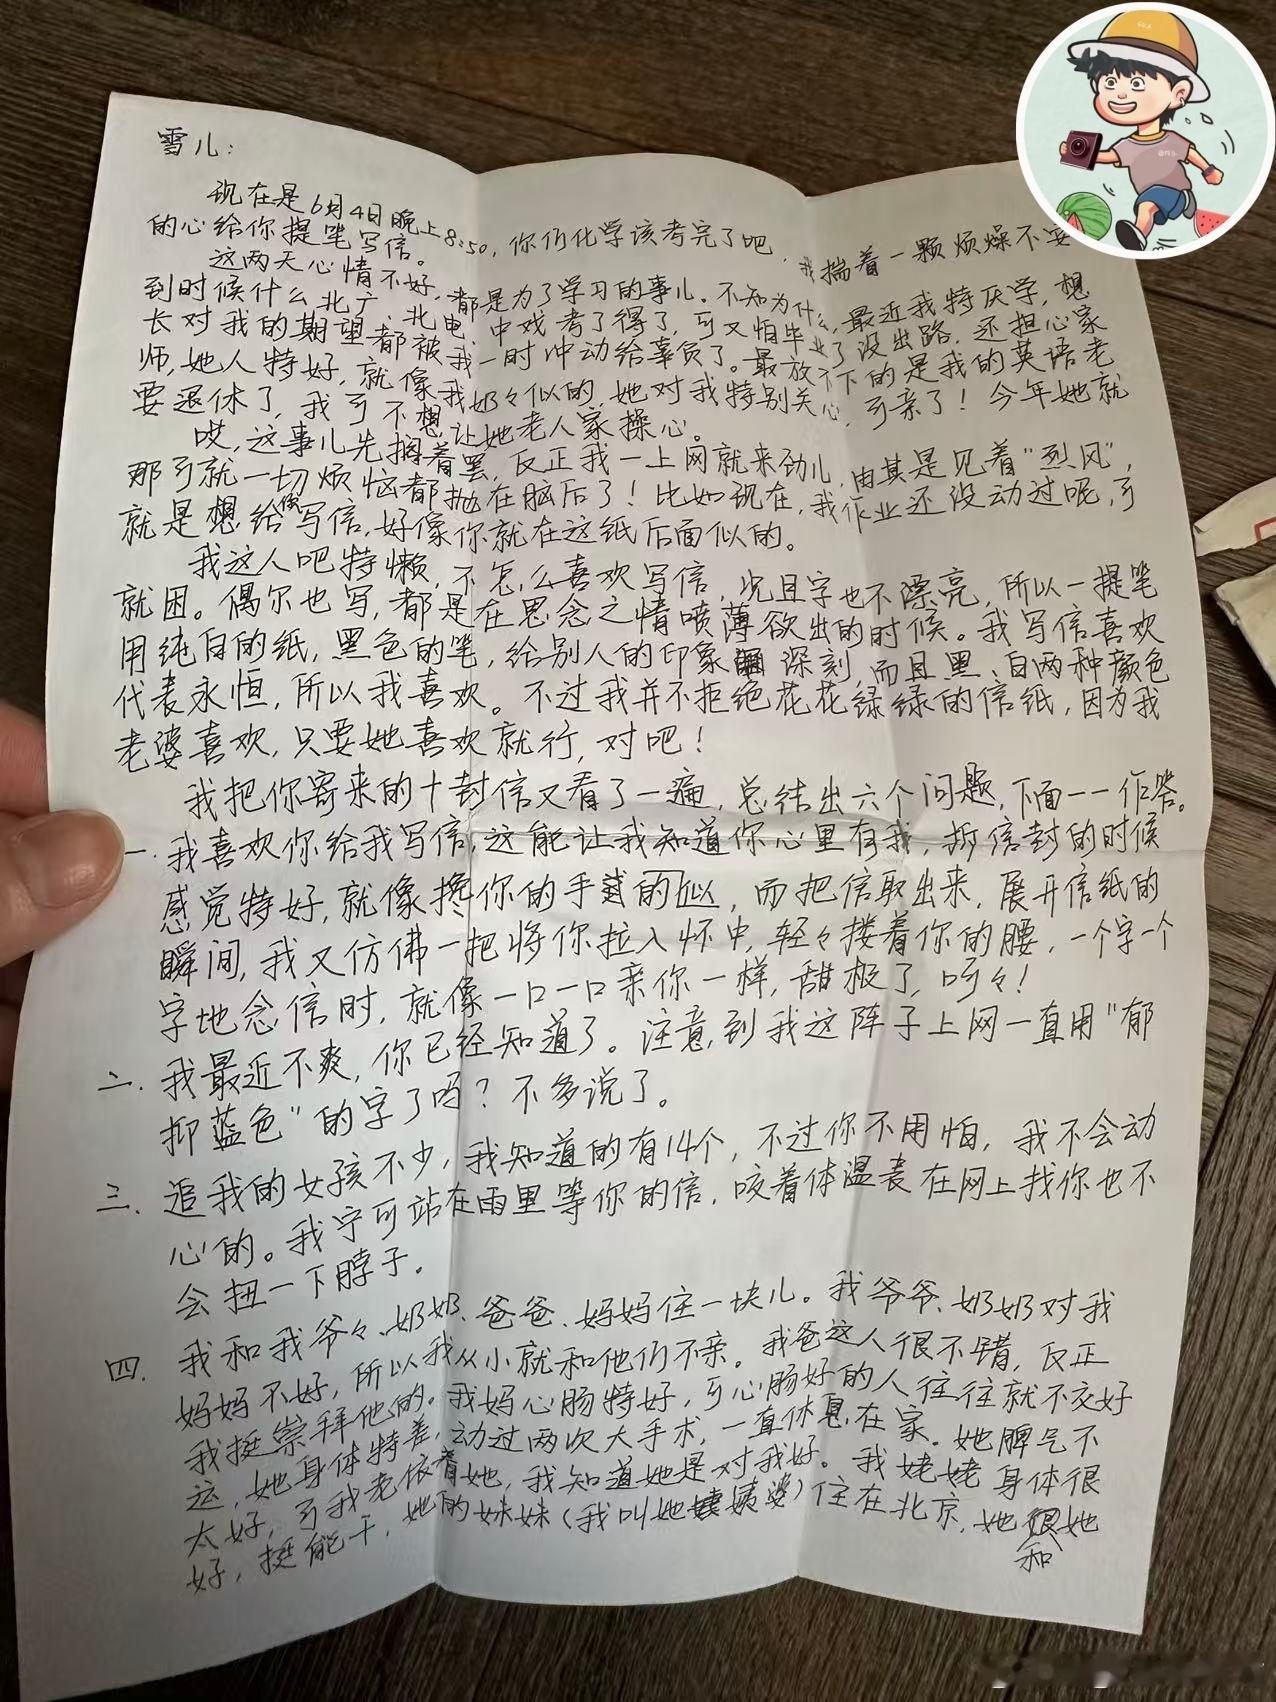 雪儿：
现在是6月4日晚上8:50，你们化学该考完了吧，我揣着一颗烦燥不安
的心给你提笔写信。
这两天心情不好，都是为了学习的事儿。不知为什么，最近我特厌学，想
到时候什么北广、北电、中戏考了得了，可又怕毕业了没出路，还担心家
长对我的期望都被我一时冲动给辜负了。最放不下的是我的英语老
师，她人特好，就像我奶々似的，她对我特别关心，可亲了！今年她就
要退休了，我可不想让她老人家操心。
哎，这事儿先搁着罢，反正我一上网就来劲儿，由其是见着“烈风”，
那可就一切烦恼都抛在脑后了！比如现在，我作业还没动过呢，可
就是想给你写信，好像你就在这纸后面似的。
我这人吧特懒，不怎么喜欢写信，况且字也不漂亮，所以一提笔
就困。偶尔也写，都是在思念之情喷薄欲出的时候。我写信喜欢
用纯白的纸，黑色的笔，给别人的印象深刻，而且黑、白两种颜色
代表永恒，所以我喜欢。不过我并不拒绝花花绿绿的信纸，因为我
老婆喜欢，只要她喜欢就行，对吧！
我把你寄来的十封信又看了一遍，总结出六个问题，下面一一作答。
一．我喜欢你给我写信，这能让我知道你心里有我，拆信封的时候
感觉特好，就像搀你的手似的，而把信取出来，展开信纸的
瞬间，我又仿佛一把将你拉入怀中，轻々搂着你的腰，一个字一个
字地念信时，就像一口一口亲你一样，甜极了，呵々！
二．我最近不爽，你已经知道了。注意到我这阵子上网一直用“郁
抑蓝色”的字了吗？不多说了。
三．追我的女孩不少，我知道的有14个，不过你不用怕，我不会动
心的。我宁可站在雨里等你的信，咬着体温表在网上找你也不
会扭一下脖子。
四．我和我爷々、奶奶、爸爸、妈妈住一块儿。我爷爷、奶奶对我
妈妈不好，所以我从小就和他们不亲。我爸这人很不错，反正
我挺崇拜他的。我妈心肠特好，可心肠好的人往往就不交好
运，她身体特差，动过两次大手术，一直休息在家。她脾气不
太好，可我老依着她，我知道她是对我好。我姥姥身体很
好，挺能干，她的妹妹（我叫她姨婆）住在北京，她和她